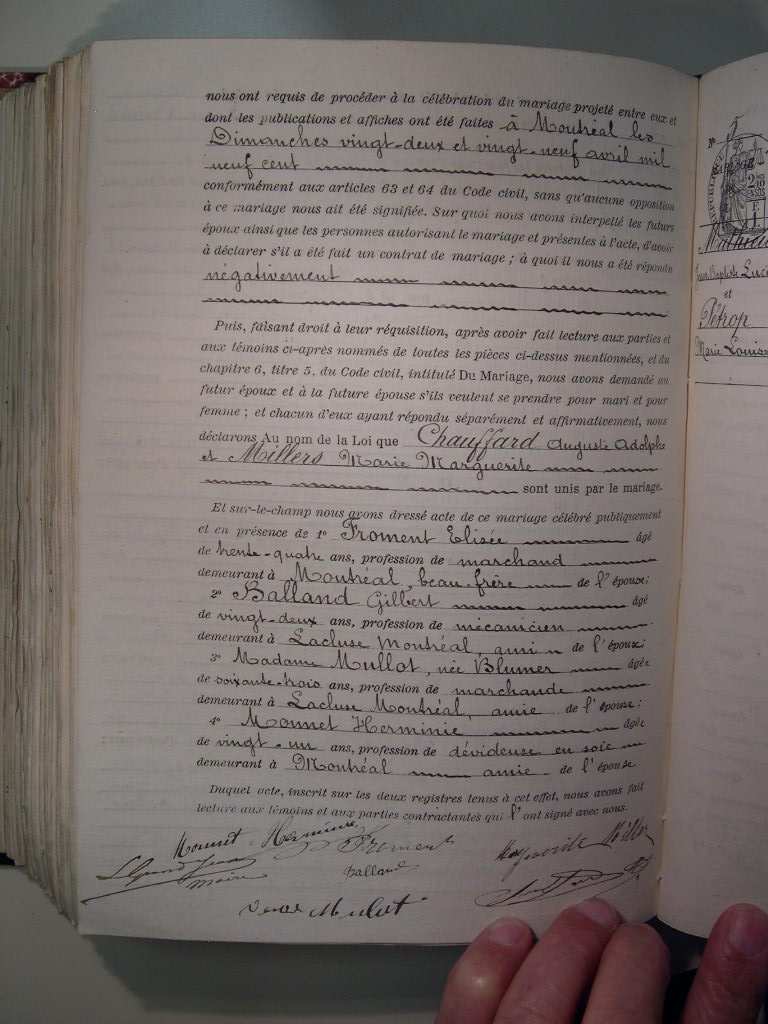 nous ont requis de procéder à la célébration du mariage projeté entre eux et
dont les publications et affiches ont été faites à Montréal les
Dimanches vingt-deux et vingt-neuf avril mil
neuf cent
conformément aux articles 63 et 64 du Code civil, sans qu'aucune opposition
à ce mariage nous ait été signifiée. Sur quoi nous avons interpellé les futurs
époux ainsi que les personnes autorisant le mariage et présentes à l'acte, d'avoir
à déclarer s'il a été fait un contrat de mariage ; à quoi il nous a été répondu
négativement
Puis, faisant droit à leur réquisition, après avoir fait lecture aux parties et
aux témoins ci-après nommés de toutes les pièces ci-dessus mentionnées, et du
chapitre 6, titre 5, du Code civil, intitulé Du Mariage, nous avons demandé au
futur époux et à la future épouse s'ils veulent se prendre pour mari et pour
femme ; et chacun d'eux ayant répondu séparément et affirmativement, nous
déclarons Au nom de la Loi que Chauffard Auguste Adolphe
et Millers Marie Marguerite
sont unis par le mariage.
Et sur-le-champ nous avons dressé acte de ce mariage célébré publiquement
et en présence de 1° Froment Elisée âgé
de trente-quatre ans, profession de marchand
demeurant à Montréal, beau-frère de l'époux;
2° Balland Gilbert âgé
de vingt-deux ans, profession de mécanicien
demeurant à Lacluse Montréal, ami de l'époux;
3° Madame Mullot, née Blumer âgée
de soixante-trois ans, profession de marchande
demeurant à Lacluse Montréal, amie de l'épouse;
4° Monnet Herminie âgée
de vingt-un ans, profession de dévideuse en soie
demeurant à Montréal amie de l'épouse
Duquel acte, inscrit sur les deux registres tenus à cet effet, nous avons fait
lecture aux témoins et aux parties contractantes qui l'ont signé avec nous.
Monnet Herminie Froment
maire Balland
N°
Jean Baptiste
et
Pétrop
Marie Louise